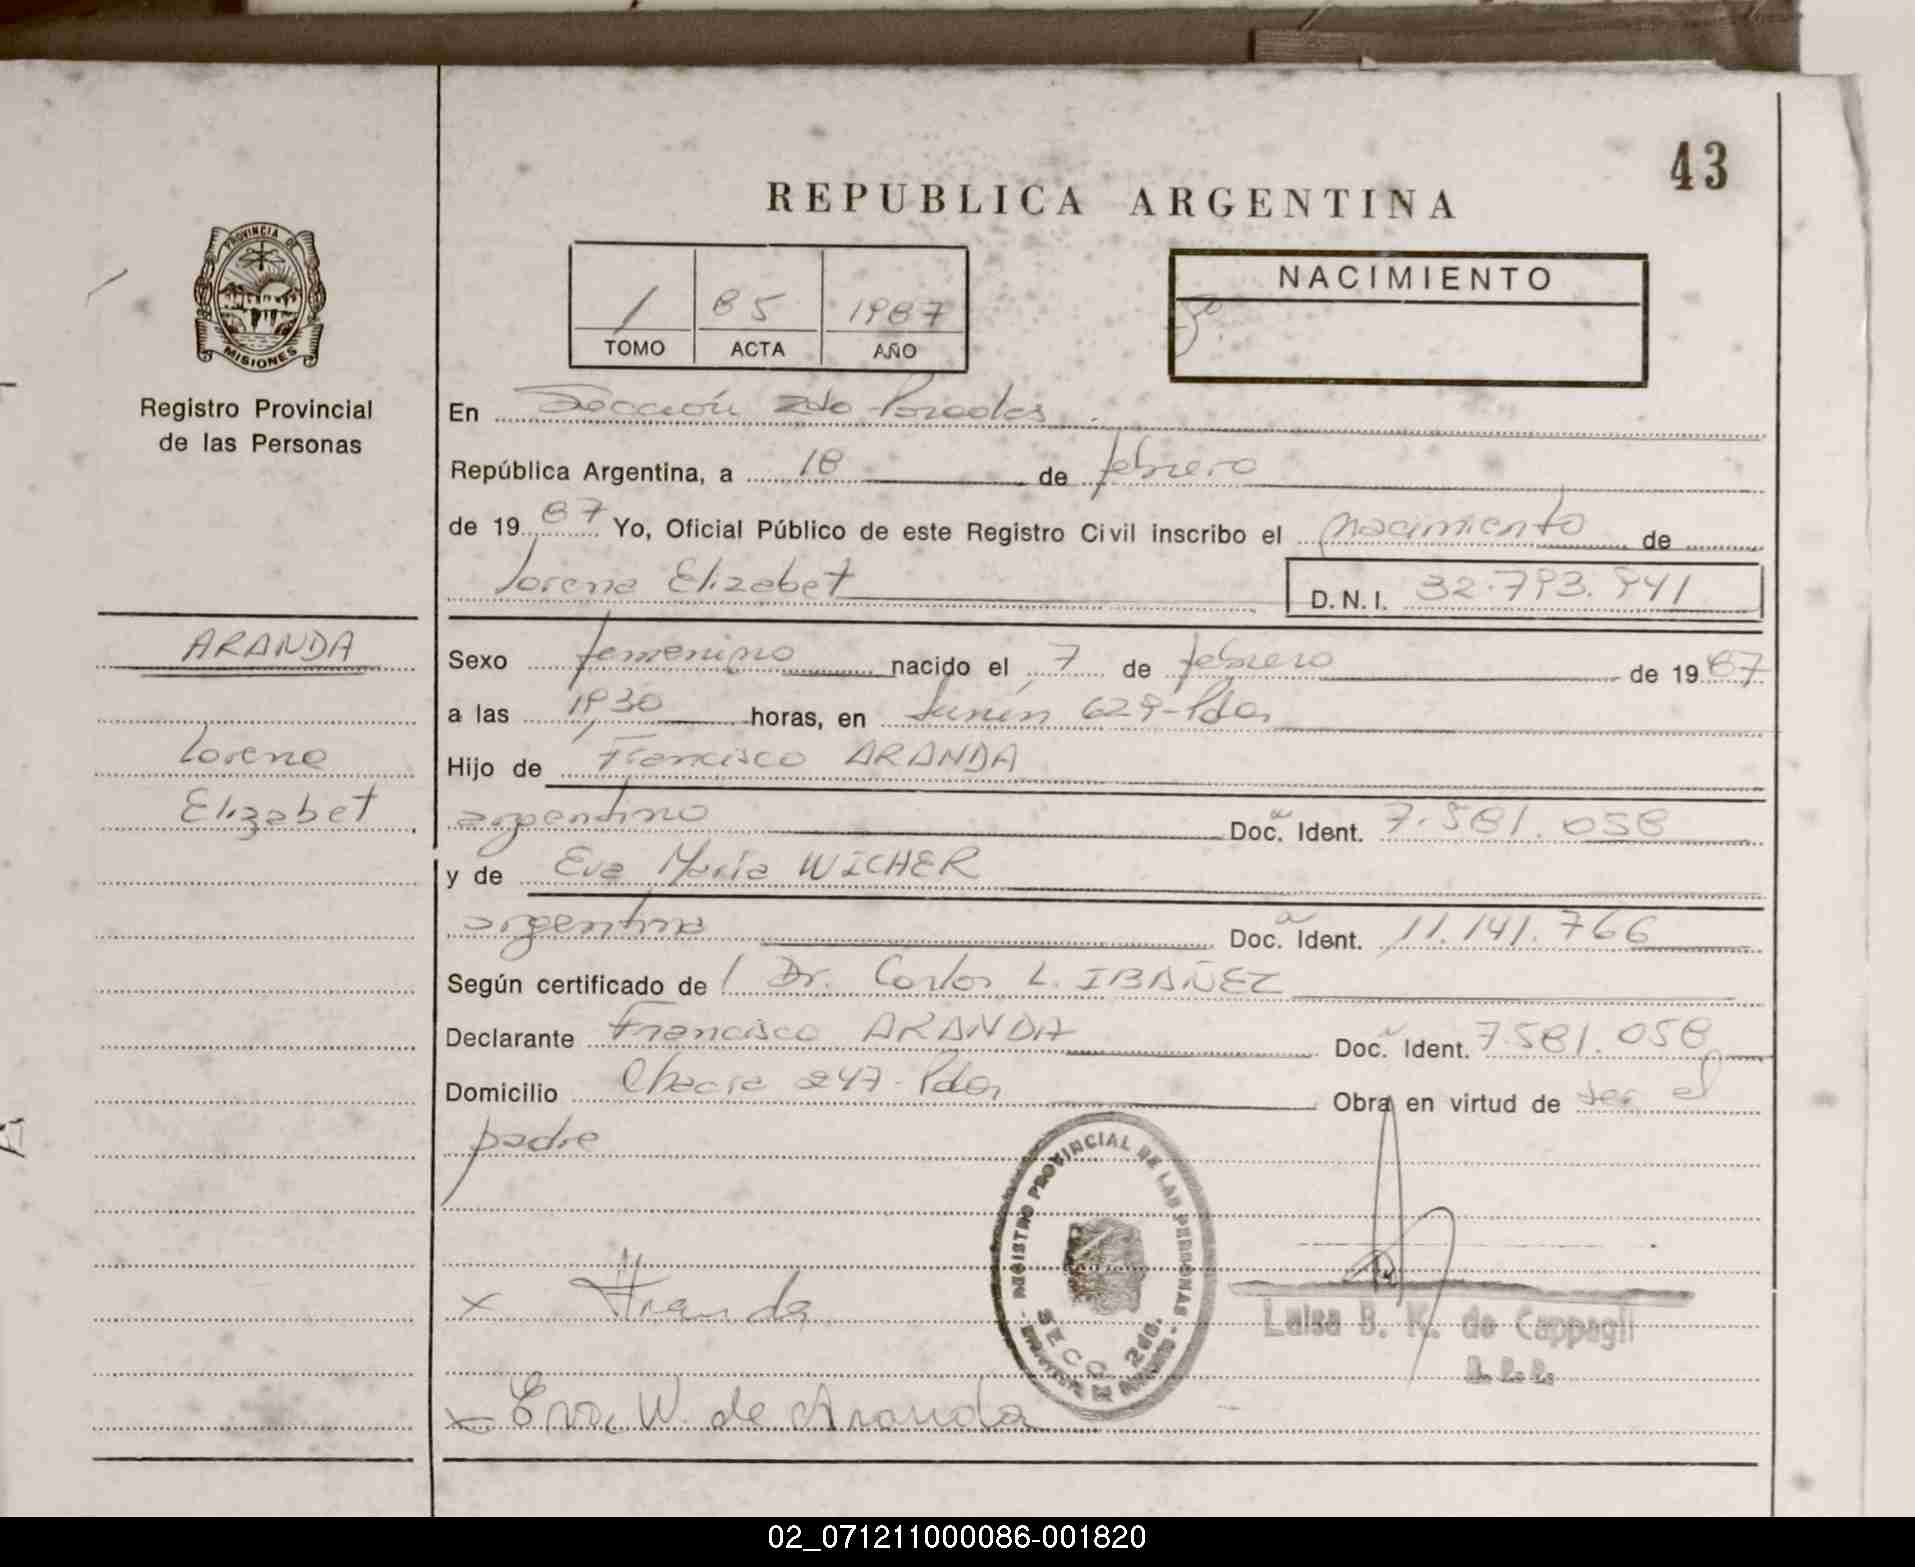 43
REPUBLICA ARGENTINA
PROVINCIA DE
MISIONES
Registro Provincial
de las Personas
1 85 1987
TOMO ACTA AÑO
NACIMIENTO
En Sección 2do Posadas
República Argentina, a 18 de febrero
de 1987 Yo, Oficial Público de este Registro Civil inscribo el nacimiento de
Lorena Elizabet D.N.I. 32.793.941
ARANDA
Lorena
Elizabet
Sexo femenino nacido el 7 de febrero de 1987
a las 19,30 horas, en Junín 629-Pdas
Hijo de Francisco ARANDA
argentino Doc. Ident. 7.581.058
y de Eva María WICHER
argentina Doc. Ident. 11.141.766
Según certificado de Dr. Carlos L. IBAÑEZ
Declarante Francisco ARANDA Doc. Ident. 7.581.058
Domicilio Chacra 247-Pdas Obra en virtud de ser el
padre
REGISTRO PROVINCIAL DE LAS PERSONAS
SECC. 2da.
x Aranda
Luisa B. K. de Cappagli
x Eva W. de Aranda
02_071211000086-001820